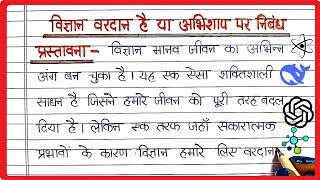 विज्ञान वरदान है या अभिशाप पर निबंध
प्रस्तावना - विज्ञान मानव जीवन का अभिन्न
अंग बन चुका है। यह एक ऐसा शक्तिशाली
साधन है जिसने हमारे जीवन को पूरी तरह बदल
दिया है। लेकिन एक तरफ जहाँ सकारात्मक
प्रभावों के कारण विज्ञान हमारे लिए वरदान